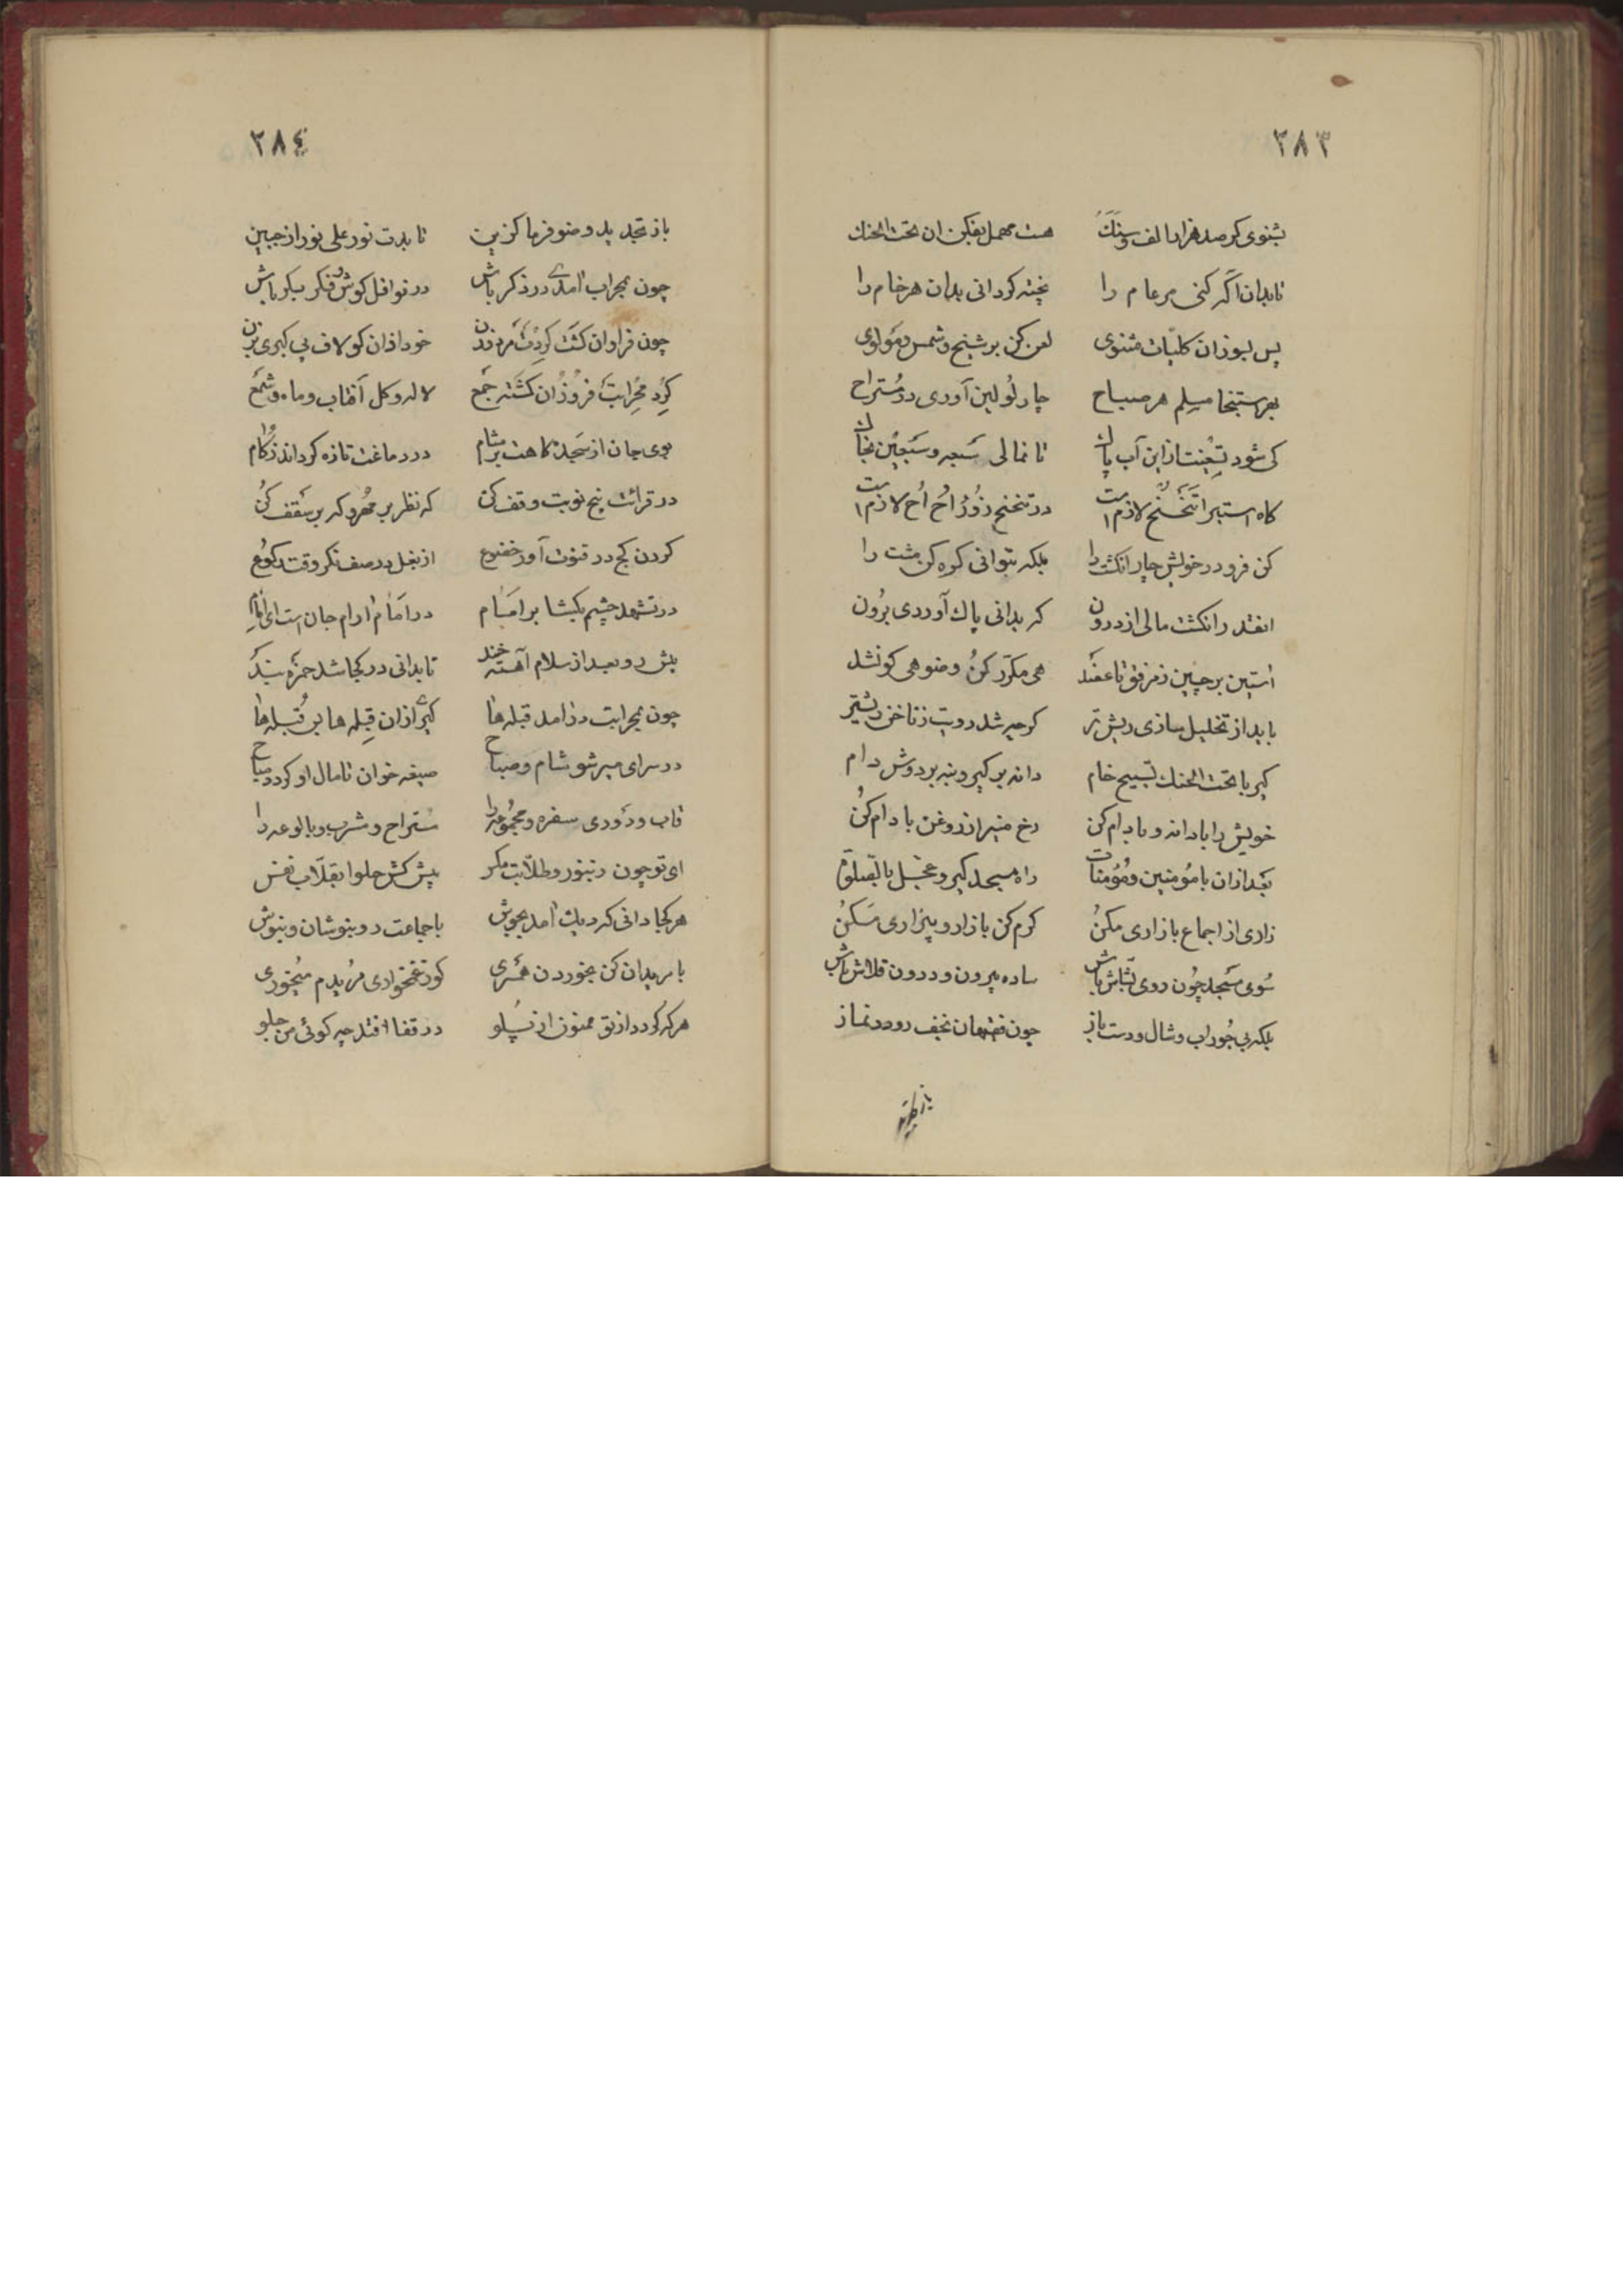 ٣٨٣
بشنوی کر صد هزارا لف وسنک هست مهمل بفکن ان تحت الحنک
تابدان آکه کنی مر عام را پخته کردانی بدان هر خام را
پس بسوزان کلیات مثنوی لعن کن بر شیخ و شمس و مولوی
بهر ستنجا مسلم هر صباح چار لولین آوری در مستراح
کی شود تعینت از این آب پاک تا نمالی سبعه و سبعین بخاک
کاه استبرا تنحنح لازم است در تنحنح زور اح اح لازم است
کن فرو در خویش چار انکشت را بلکه بتوانی کره کن مشت را
انقدر انکشت مالی از درون که بدانی پاک آوردی برون
استین برچین ز مرفق تا عضد هی مکرر کن وضو هی کو نشد
باید از تخلیل سازی ریش تر کرچه شد رویت ز ناخن ریشتر
کیر با تحت الحنک تسبیح خام دانه بر کیر و بنه بر دوش دام
خویش را با دانه و با دام کن رخ منیر از روغن بادام کن
بعد ازان با مؤمنین و مؤمنات راه مسجد کیر و عجل بالصلوة
زاری از اجماع بازاری مکن کرم کن بازار و بیزاری مکن
سوی مسجد چون روی بشاش باش ساده بیرون و درون قلاش باش
بلکه بی جوراب و شال و دست باز چون فقیهان نجف رو در نماز
٣٨٤
باز تجدید وضو فرما کزین تا بدت نور علی نور از جبین
چون بمحراب آمدی در ذکر باش در نوافل کوش و فکر بکر باش
چون فراوان کشت کردت مرد و زن خود اذان کو لاف بی کبری بزن
کرد محرابت فروزان کشته جمع لاله و کل آفتاب و ماه و شمع
بوی جان از سجده کاهت بر مشام در دماغت تازه کرداند زکام
در قرائت پنج نوبت وقف کن که نظر بر مهر و که بر سقف کن
کردن کج در قنوت آور خضوع از بغل در صف نکر وقت رکوع
در تشهد چشم بکشا بر امام در امام ارام جان است ای
پیش رو بعد از سلام آهسته خند تا بدانی در کجا شد حمزه بند
چون بمحرابت درامد قبله ها کیر ازان قبله ها بر قبله ها
در سرای میر شو شام و صباح صیغه خوان تا مال او کردد مباح
قاب و دوری سفره و مجموعه را ستراح و شرب و بالوعه را
ای تو چون زنبور و طلابت مکر پیش کش حلوا بقلاب نفس
هر کجا دانی که دیک آمد بجوش با جماعت رو بنوشان و بنوش
با مریدان کن بخوردن همسری کوز غمخواری مریدم میخوری
هر که کردد از تو ممنون از پلو در قفا افتد چه کوئی من جلو